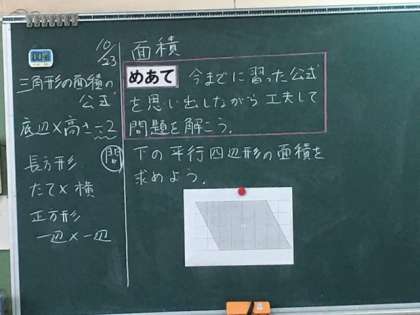 10/23
三角形の面積の
公式
底辺×高さ÷2
長方形
たて×横
正方形
一辺×一辺
面積
めあて 今までに習った公式
を思い出しながら工夫して
問題を解こう。
問 下の平行四辺形の面積を
求めよう。